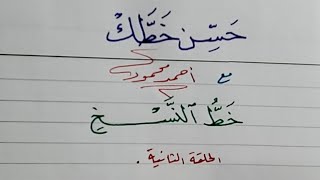 حَسِّن خَطَّكَ
مع أحمد محمود
خَطُّ ٱلنَّسْخِ
الحلقة الثانية .